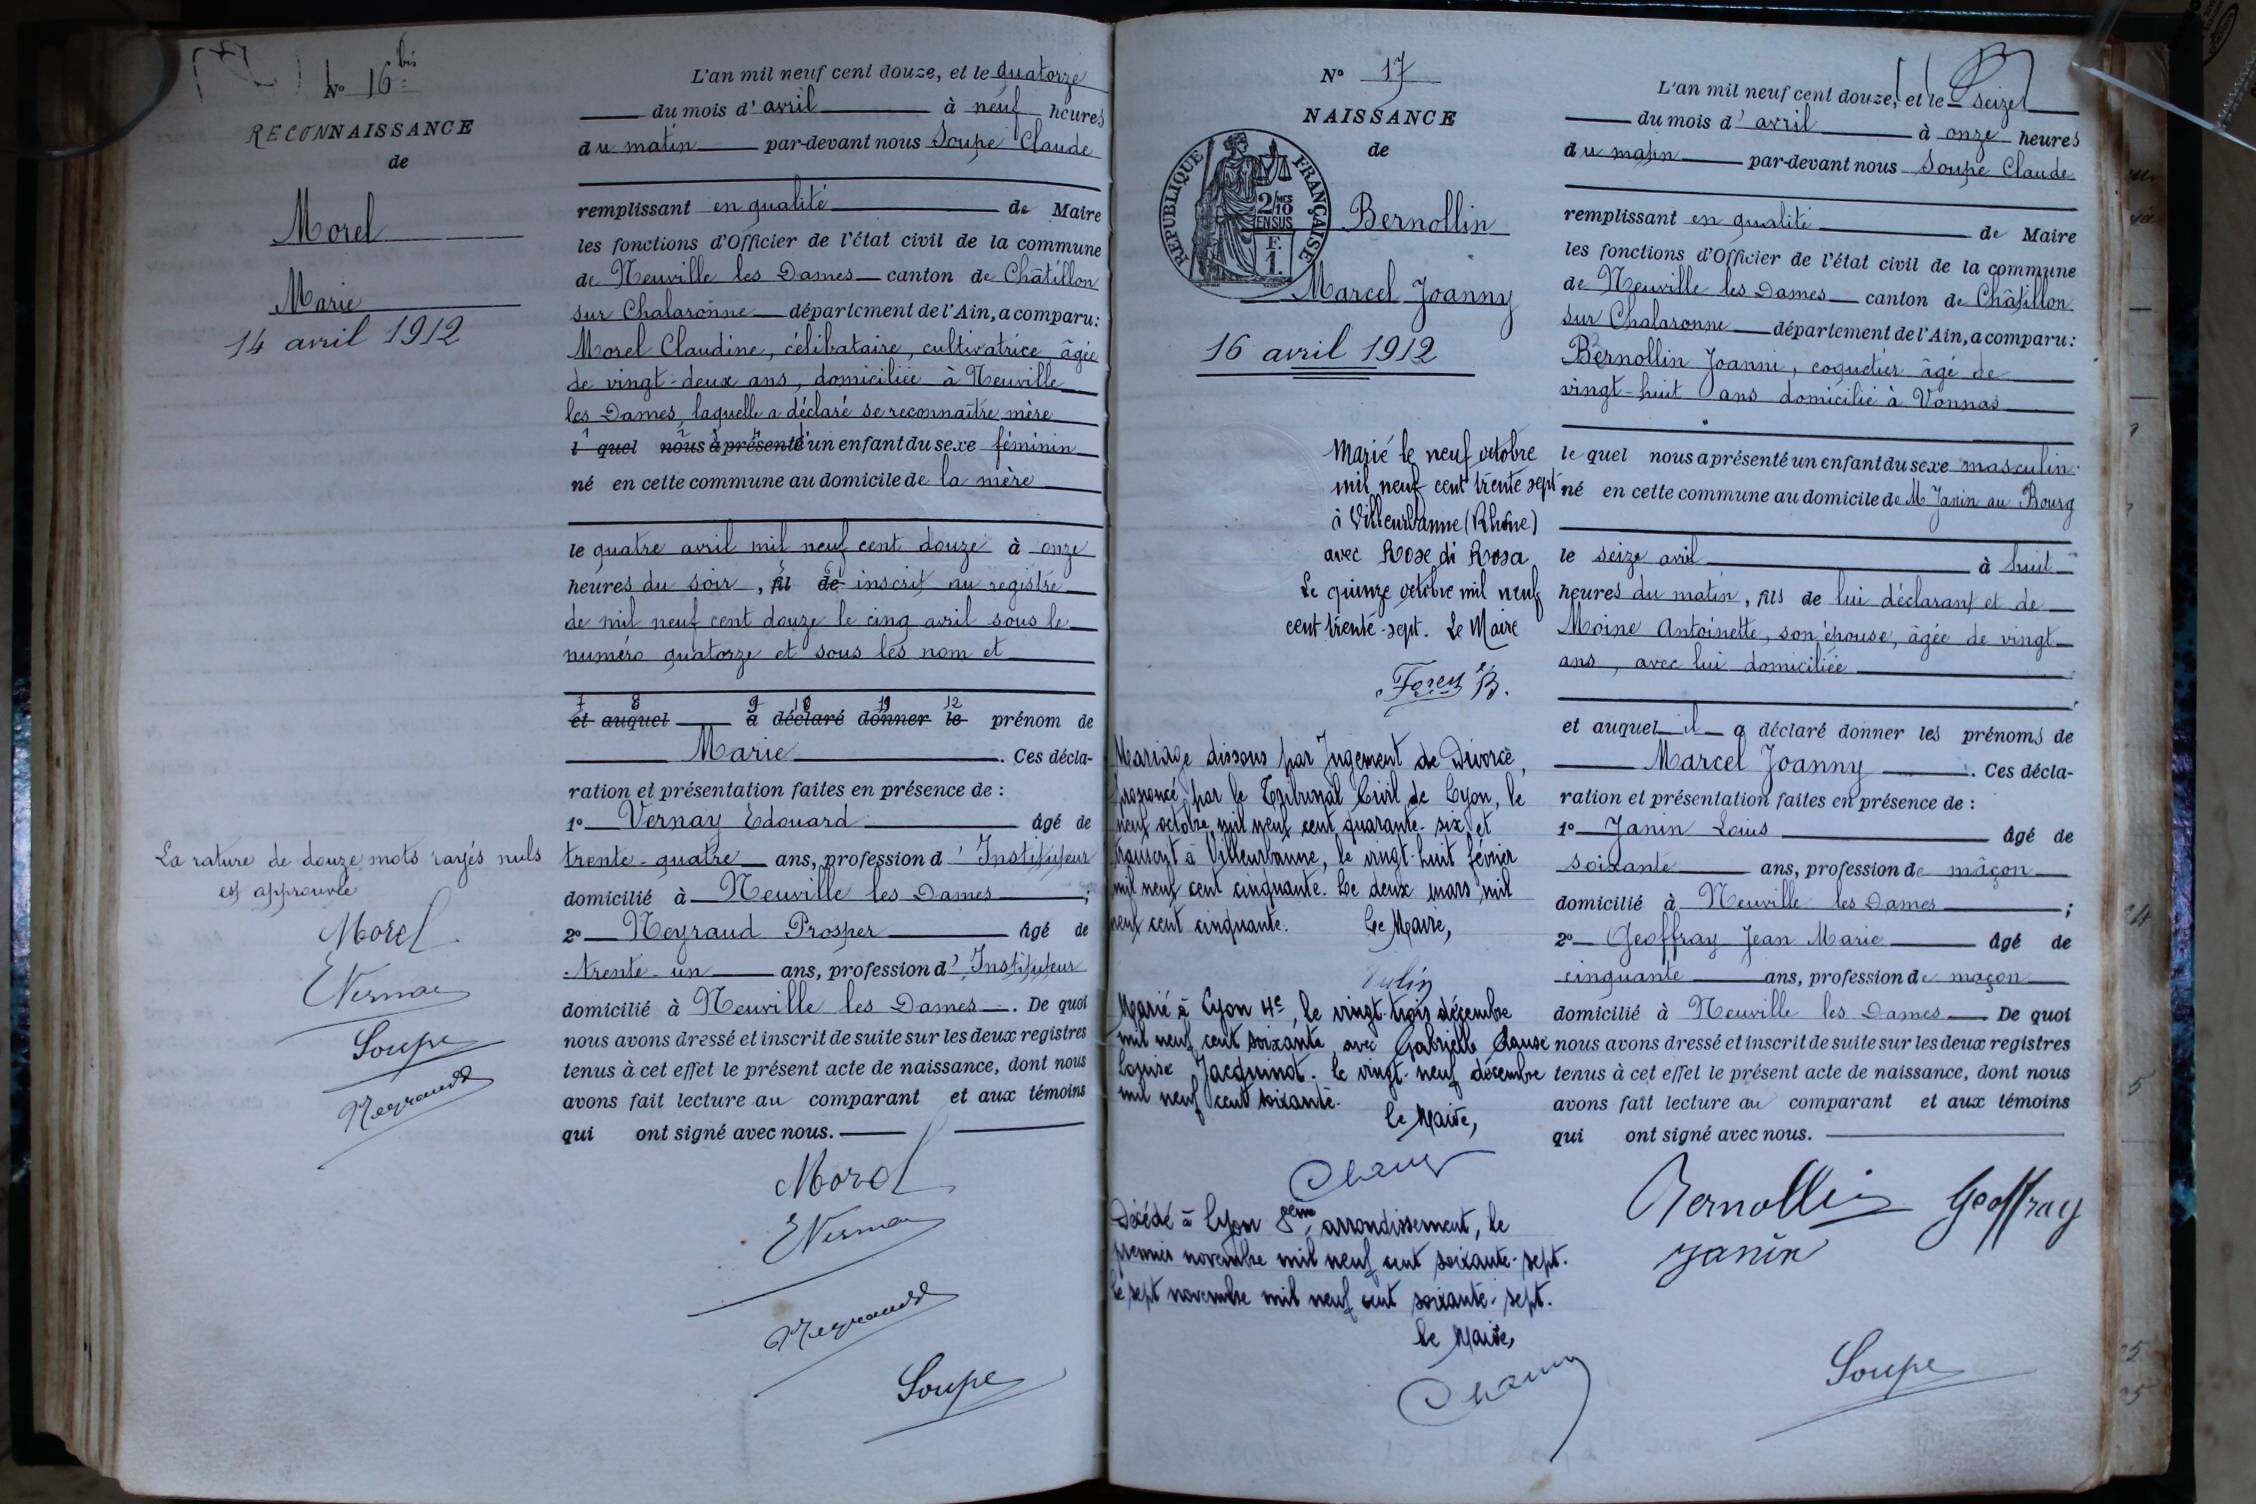 No 16 bis
RECONNAISSANCE
de
Morel
Marie
14 avril 1912
La rature de douze mots rayés nuls
est approuvée
Morel
EVernay
Soupe
Neyraud
L'an mil neuf cent douze, et le quatorze
du mois d'avril à neuf heures
du matin par-devant nous Soupe Claude
remplissant en qualité de Maire
les fonctions d'Officier de l'état civil de la commune
de Neuville les Dames canton de Châtillon
sur Chalaronne département de l'Ain, a comparu:
Morel Claudine, célibataire, cultivatrice âgée
de vingt-deux ans, domiciliée à Neuville
les Dames, laquelle a déclaré se reconnaître mère
1 2 3 4
l quel nous a présenté d'un enfant du sexe féminin
né en cette commune au domicile de la mère
le quatre avril mil neuf cent douze à onze
5 6
heures du soir, fil de inscrit au registre
de mil neuf cent douze le cinq avril sous le
numéro quatorze et sous les nom et
7 8 9 10 11 12
et auquel a déclaré donner le prénom de
Marie. Ces décla-
ration et présentation faites en présence de:
1o Vernay Edouard âgé de
trente-quatre ans, profession d'Instituteur
domicilié à Neuville les Dames;
2o Neyraud Prosper âgé de
trente-un ans, profession d'Instituteur
domicilié à Neuville les Dames. De quoi
nous avons dressé et inscrit de suite sur les deux registres
tenus à cet effet le présent acte de naissance, dont nous
avons fait lecture au comparant et aux témoins
qui ont signé avec nous.
Morel
EVernay
Neyraud
Soupe
No 17
NAISSANCE
de
REPUBLIQUE FRANÇAISE
2/10 MES
EN SUS
F.
1.
Bernollin
Marcel Joanny
16 avril 1912
Marié le neuf octobre
mil neuf cent trente sept
à Villeurbanne (Rhône)
avec Rose di Rosa
Le quinze octobre mil neuf
cent trente-sept. Le Maire
Mariage dissous par Jugement de Divorce,
prononcé par le Tribunal Civil de Lyon, le
neuf octobre mil neuf cent quarante-six et
transcrit à Villeurbanne, le vingt-huit février
mil neuf cent cinquante. Le deux mars mil
neuf cent cinquante. Le Maire,
Marié à Lyon 4e, le vingt-trois décembre
mil neuf cent soixante avec Gabrielle
Louise Jacquinot. Le vingt-neuf décembre
mil neuf cent soixante.
Le Maire,
Décédé à Lyon 8ème arrondissement, le
premier novembre mil neuf cent soixante-sept.
Le sept novembre mil neuf cent soixante-sept.
Le Maire,
L'an mil neuf cent douze, et le seize
du mois d'avril à onze heures
du matin par-devant nous Soupe Claude
remplissant en qualité de Maire
les fonctions d'Officier de l'état civil de la commune
de Neuville les Dames canton de Châtillon
sur Chalaronne département de l'Ain, a comparu:
Bernollin Joanni, coquetier âgé de
vingt-huit ans domicilié à Vonnas
le quel nous a présenté un enfant du sexe masculin
né en cette commune au domicile de M Janin au Bourg
le seize avril à huit
heures du matin, fils de lui déclarant et de
Moine Antoinette, son épouse, âgée de vingt
ans, avec lui domiciliée
et auquel il a déclaré donner les prénoms de
Marcel Joanny. Ces décla-
ration et présentation faites en présence de:
1o Janin Louis âgé de
soixante ans, profession de mâçon
domicilié à Neuville les Dames;
2o Geoffray Jean Marie âgé de
cinquante ans, profession de maçon
domicilié à Neuville les Dames De quoi
nous avons dressé et inscrit de suite sur les deux registres
tenus à cet effet le présent acte de naissance, dont nous
avons fait lecture au comparant et aux témoins
qui ont signé avec nous.
Bernollin Geoffray
Janin
Soupe